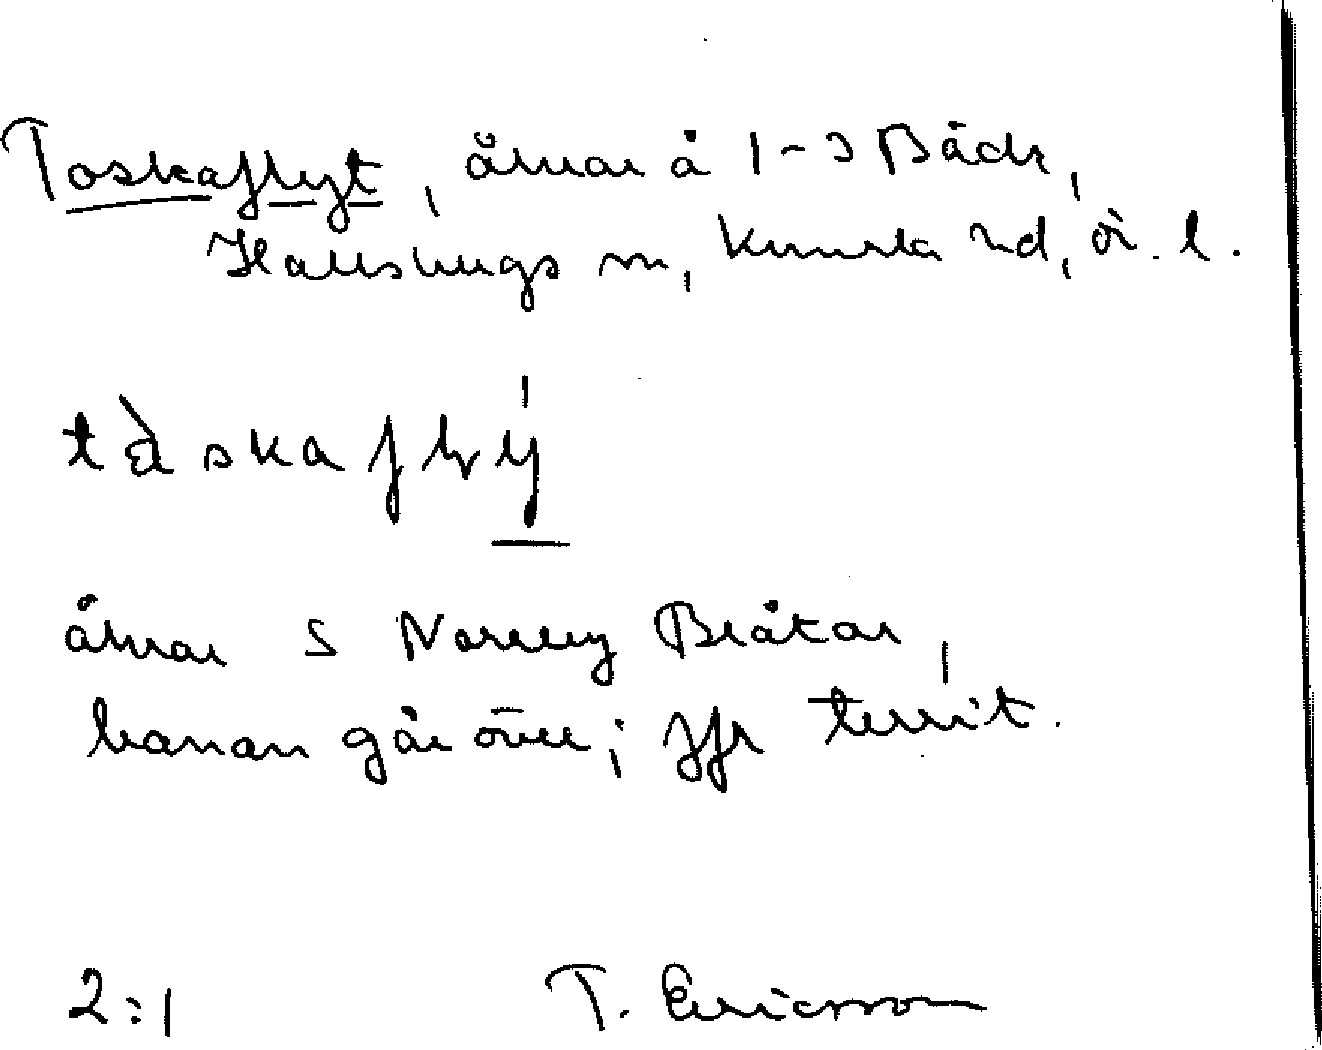 Toskaflyt, åkrar å 1-3 Bäck,
Hallsbergs sn, Kumla hd, ör. l.
tåskaflý
åkrar S Norrby Bråtar,
banan går över; jfr territ.
2:1 T. Ericsson